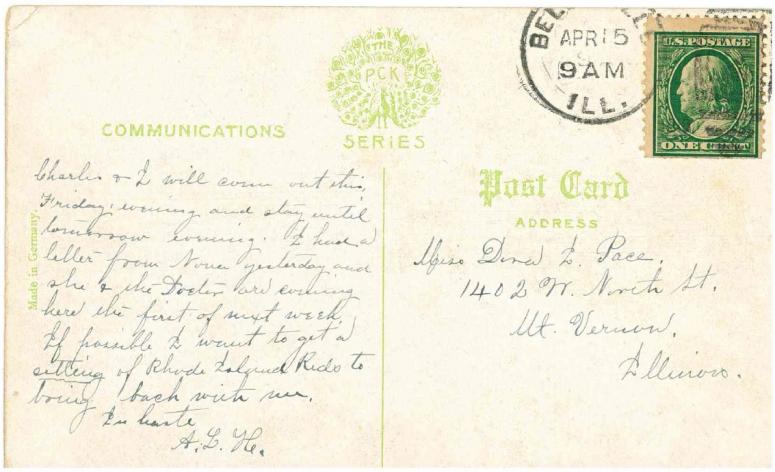 THE
PCK
SERIES
COMMUNICATIONS
Charlie & I will come out this,
Friday, evening and stay until
tomorrow evening. I had a
letter from Nona yesterday and
she & the Doctor are coming
here the first of next week.
If possible I want to get a
setting of Rhode Island Reds to
bring back with me.
In haste
A. L. H.
Made in Germany.
APR 15
9 AM
ILL.
U.S. POSTAGE
ONE CENT
Post Card
ADDRESS
Miss Dora E. Pace,
1402 W. North St.
Mt. Vernon,
Illinois.